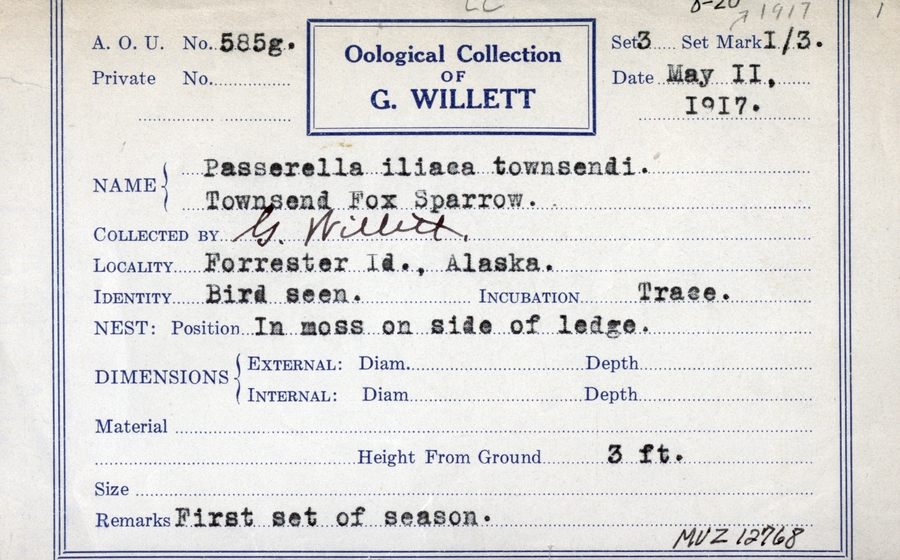 1917
A. O. U. No. 585g.
Oological Collection
OF
G. WILLETT
Set 3 Set Mark I/3.
Private No.
Date May II,
I9I7.
NAME Passerella iliaca townsendi.
Townsend Fox Sparrow.
COLLECTED BY G. Willett.
LOCALITY Forrester Id., Alaska.
IDENTITY Bird seen. INCUBATION Trace.
NEST: Position In moss on side of ledge.
DIMENSIONS
EXTERNAL: Diam. Depth
INTERNAL: Diam Depth
Material
Height From Ground 3 ft.
Size
Remarks First set of season.
MVZ 12768